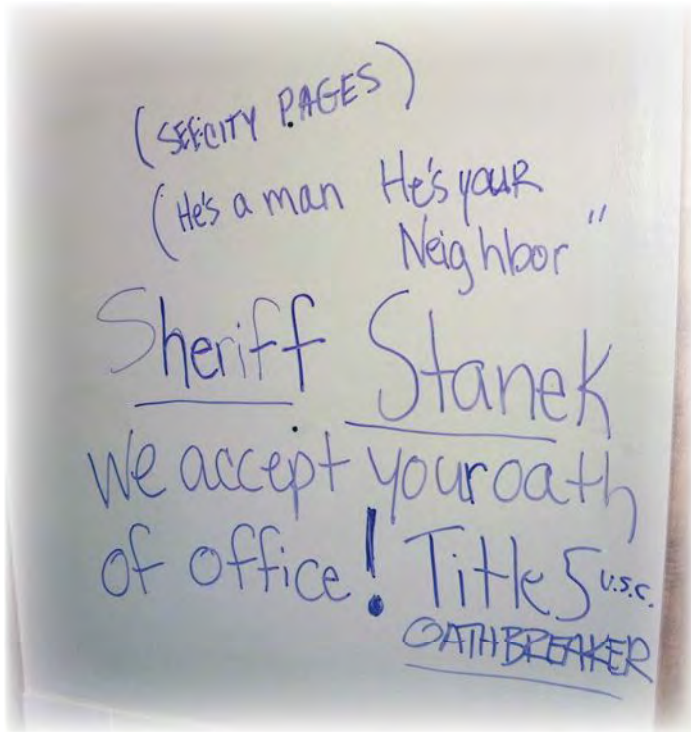 (SEE CITY PAGES)
(He's a man He's YOUR
Neighbor"
Sheriff Stanek
We accept your oath
of office! Title 5 U.S.C.
OATHBREAKER